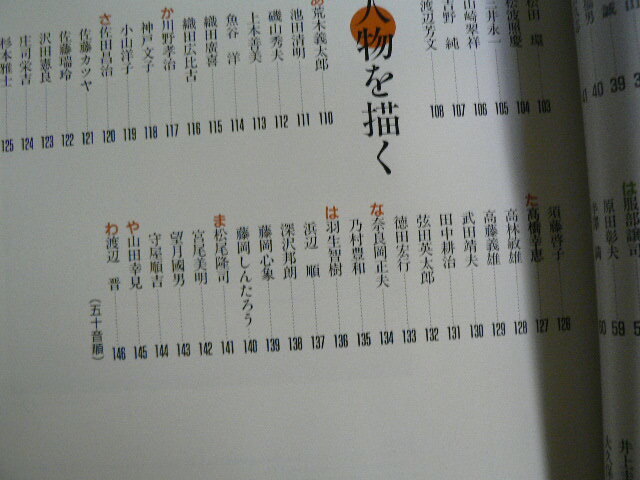 松田 環 103
松波照慶 104
三井永一 105
山崎翠祥 106
吉野 純 107
渡辺芳文 108
人物を描く
あ 荒木義太郎 110
池田清明 111
磯山秀夫 112
上本善美 113
魚谷 洋 114
織田廣喜 115
織田広比古 116
か 川野孝治 117
神戸文子 118
小山洋子 119
さ 佐田昌治 120
佐藤カツヤ 121
佐藤瑞玲 122
沢田憲良 123
庄司栄吉 124
杉本雅士 125
須藤啓子 126
た 高橋幸恵 127
高林敏雄 128
高藤義雄 129
武田靖夫 130
田中耕治 131
弦田英太郎 132
徳田宏行 133
な 奈良岡正夫 134
乃村豊和 135
は 羽生智樹 136
浜辺 順 137
深沢邦朗 138
藤岡心象 139
藤岡しんたろう 140
ま 松尾隆司 141
宮尾美明 142
望月國男 143
守屋順吉 144
や 山田幸見 145
わ 渡辺 晋 146
(五十音順)
は 服部譲司
原田彰夫 59
39
40